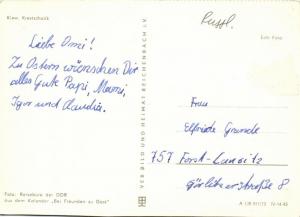 Kiew, Krestschatik
Liebe Omi!
Zu Ostern wünschen Dir
alles Gute Papi, Mami,
Igor und Claudia.
Foto: Reisebüro der DDR
aus dem Kalender „Bei Freunden zu Gast"
VEB BILD UND HEIMAT REICHENBACH i. V.
Echt Foto
Frau
Elfriede Grunde
757 Forst-Lausitz
Görlitzerstraße 8